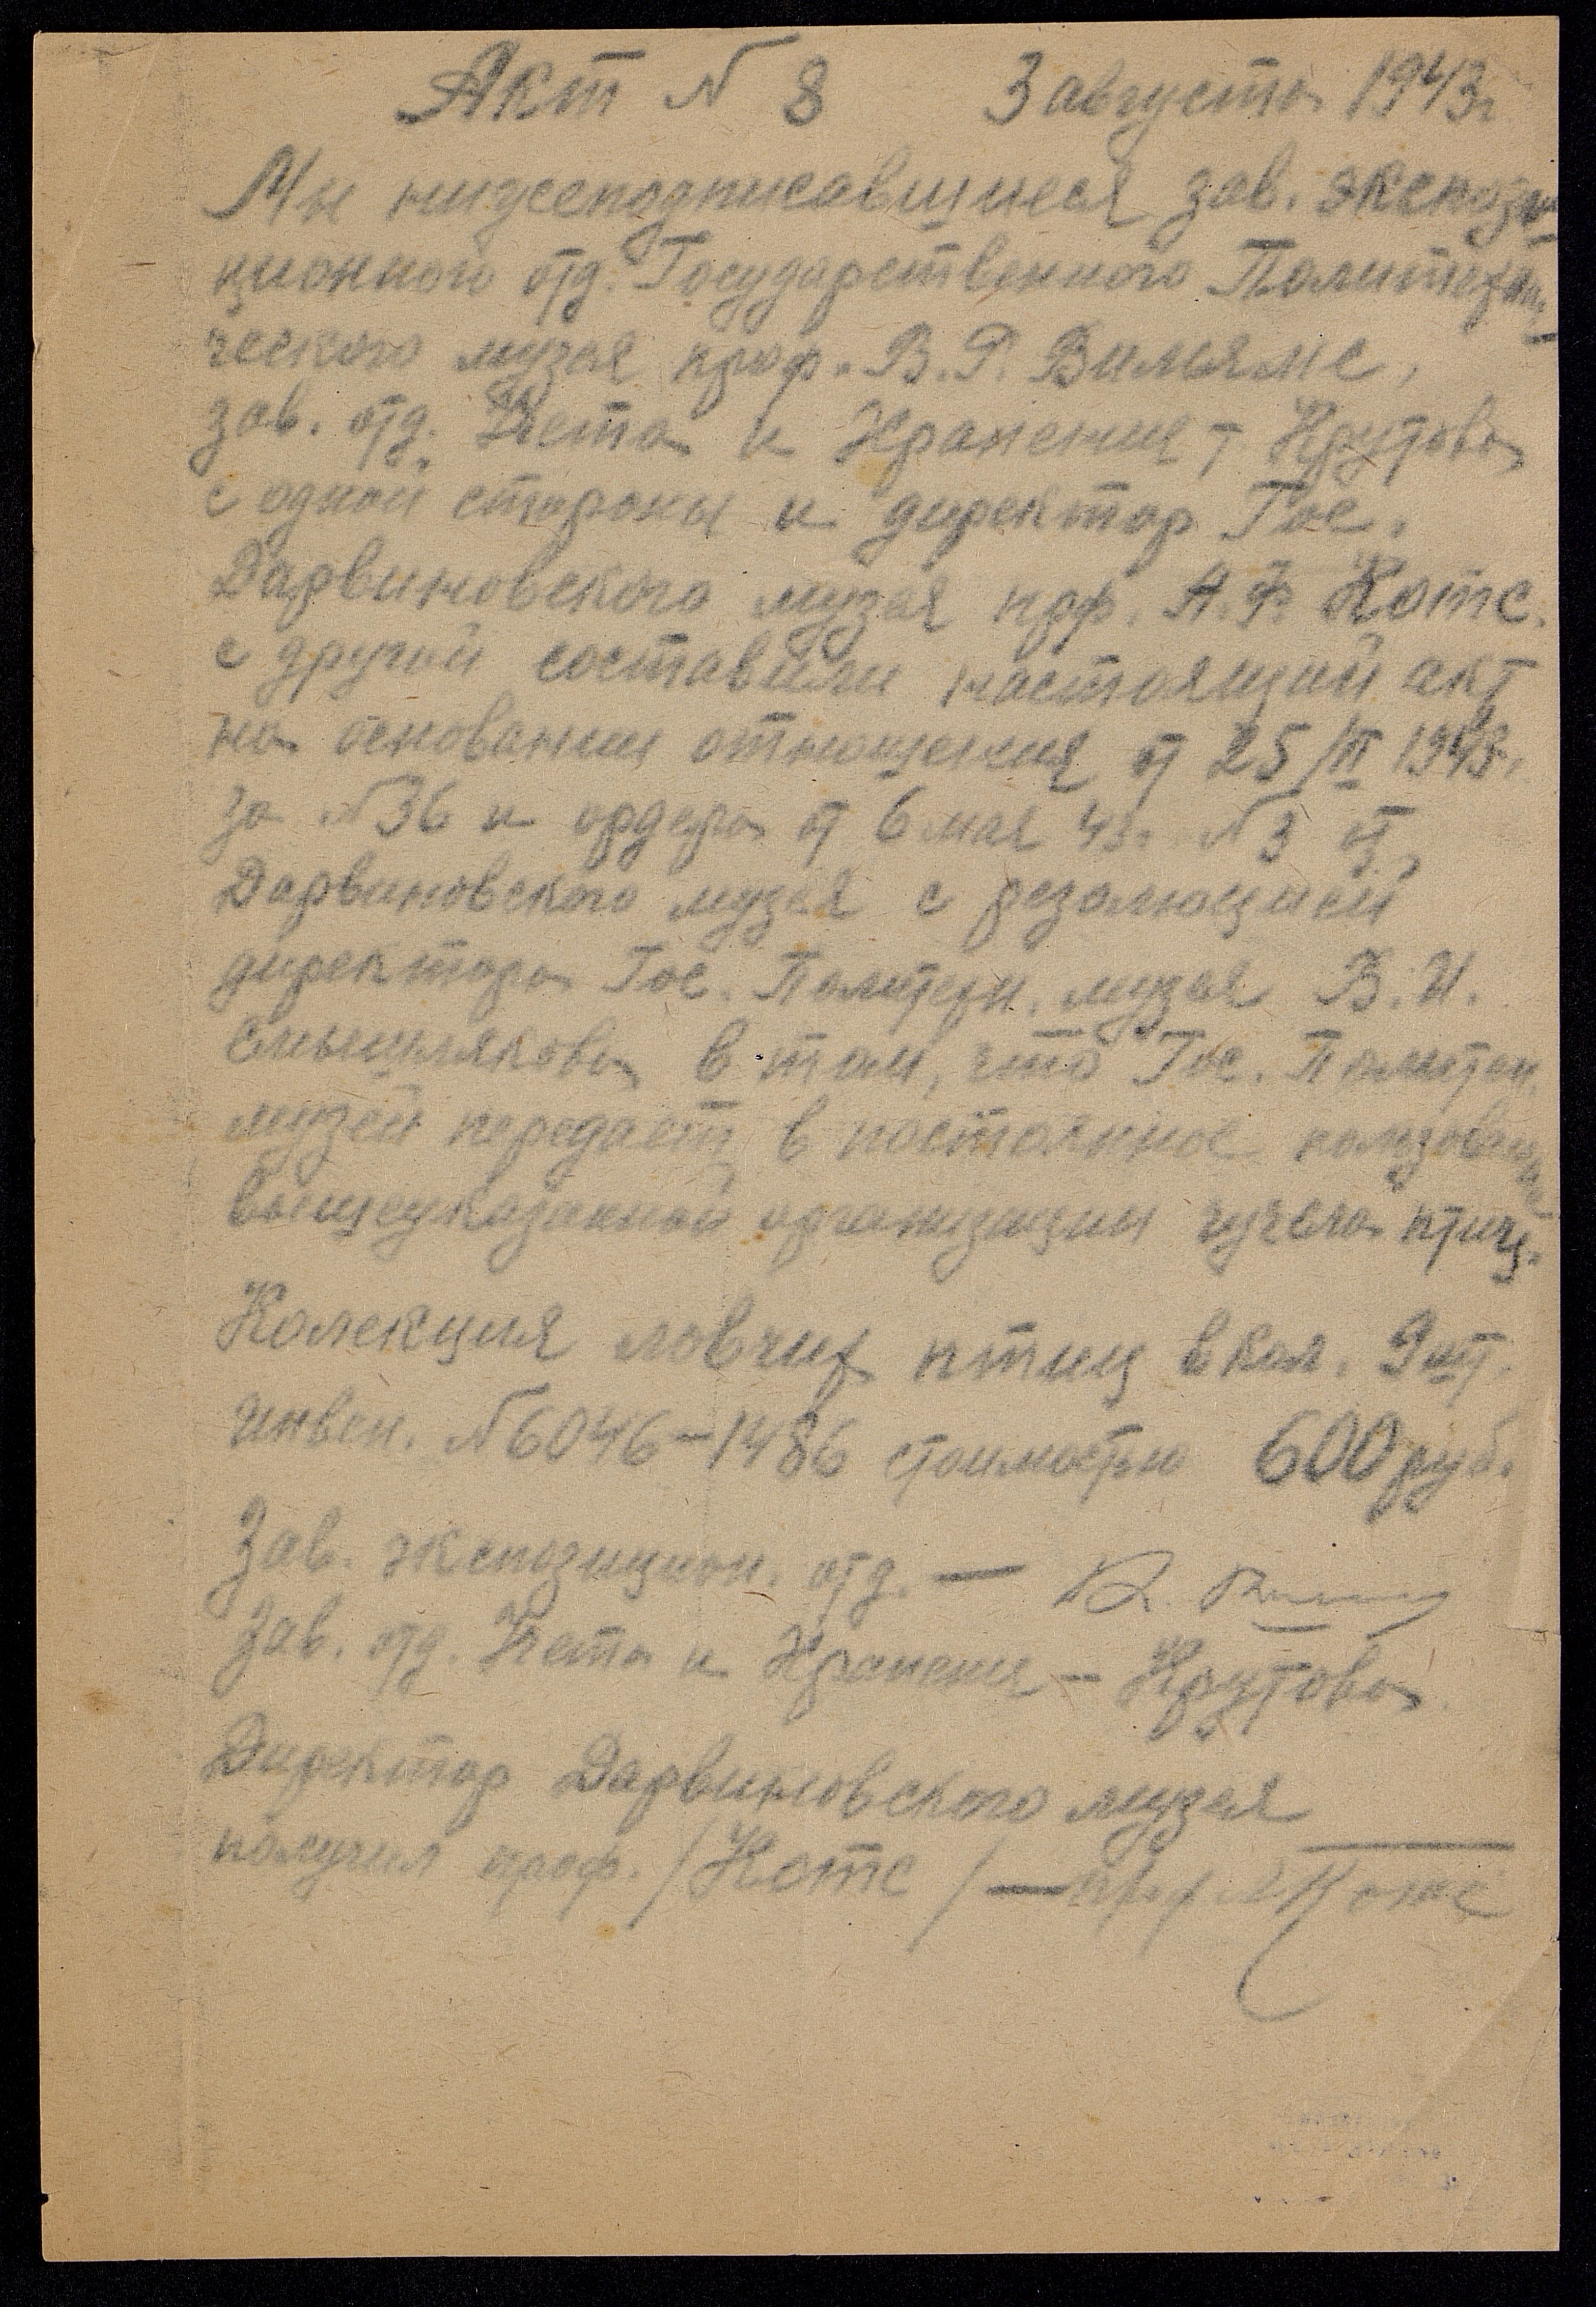 Акт N 8 3 августа 1943г
Мы нижеподписавшиеся зав. экспози
ционного отд. Государственного Политехни
ческого музея проф. В. Р. Вильямс,
зав. отд. Учета и Хранения - Крутова
с одной стороны и директор Гос.
Дарвиновского музея прф. А. Ф. Котс.
с другой составили настоящий акт
на основании отношения от 25/VI 1943г.
за N36 и ордера от 6 мая 43г. N3 от
Дарвиновского музея с резолюцией
директора Гос. Политехн. музея В. И.
Смышлякова в том, что Гос. Политехн.
музей передает в постоянное пользование
вышеуказанной организации чучела птиц.
Колекция ловчих птиц в кол. 9 шт.
инвен. N6046-1486 стоимостью 600 руб.
Зав. экспозицион. отд. —
Зав. отд. Учета и Хранения - Крутова
Директор Дарвиновского музея
получил проф. /Котс/ — проф А Котс